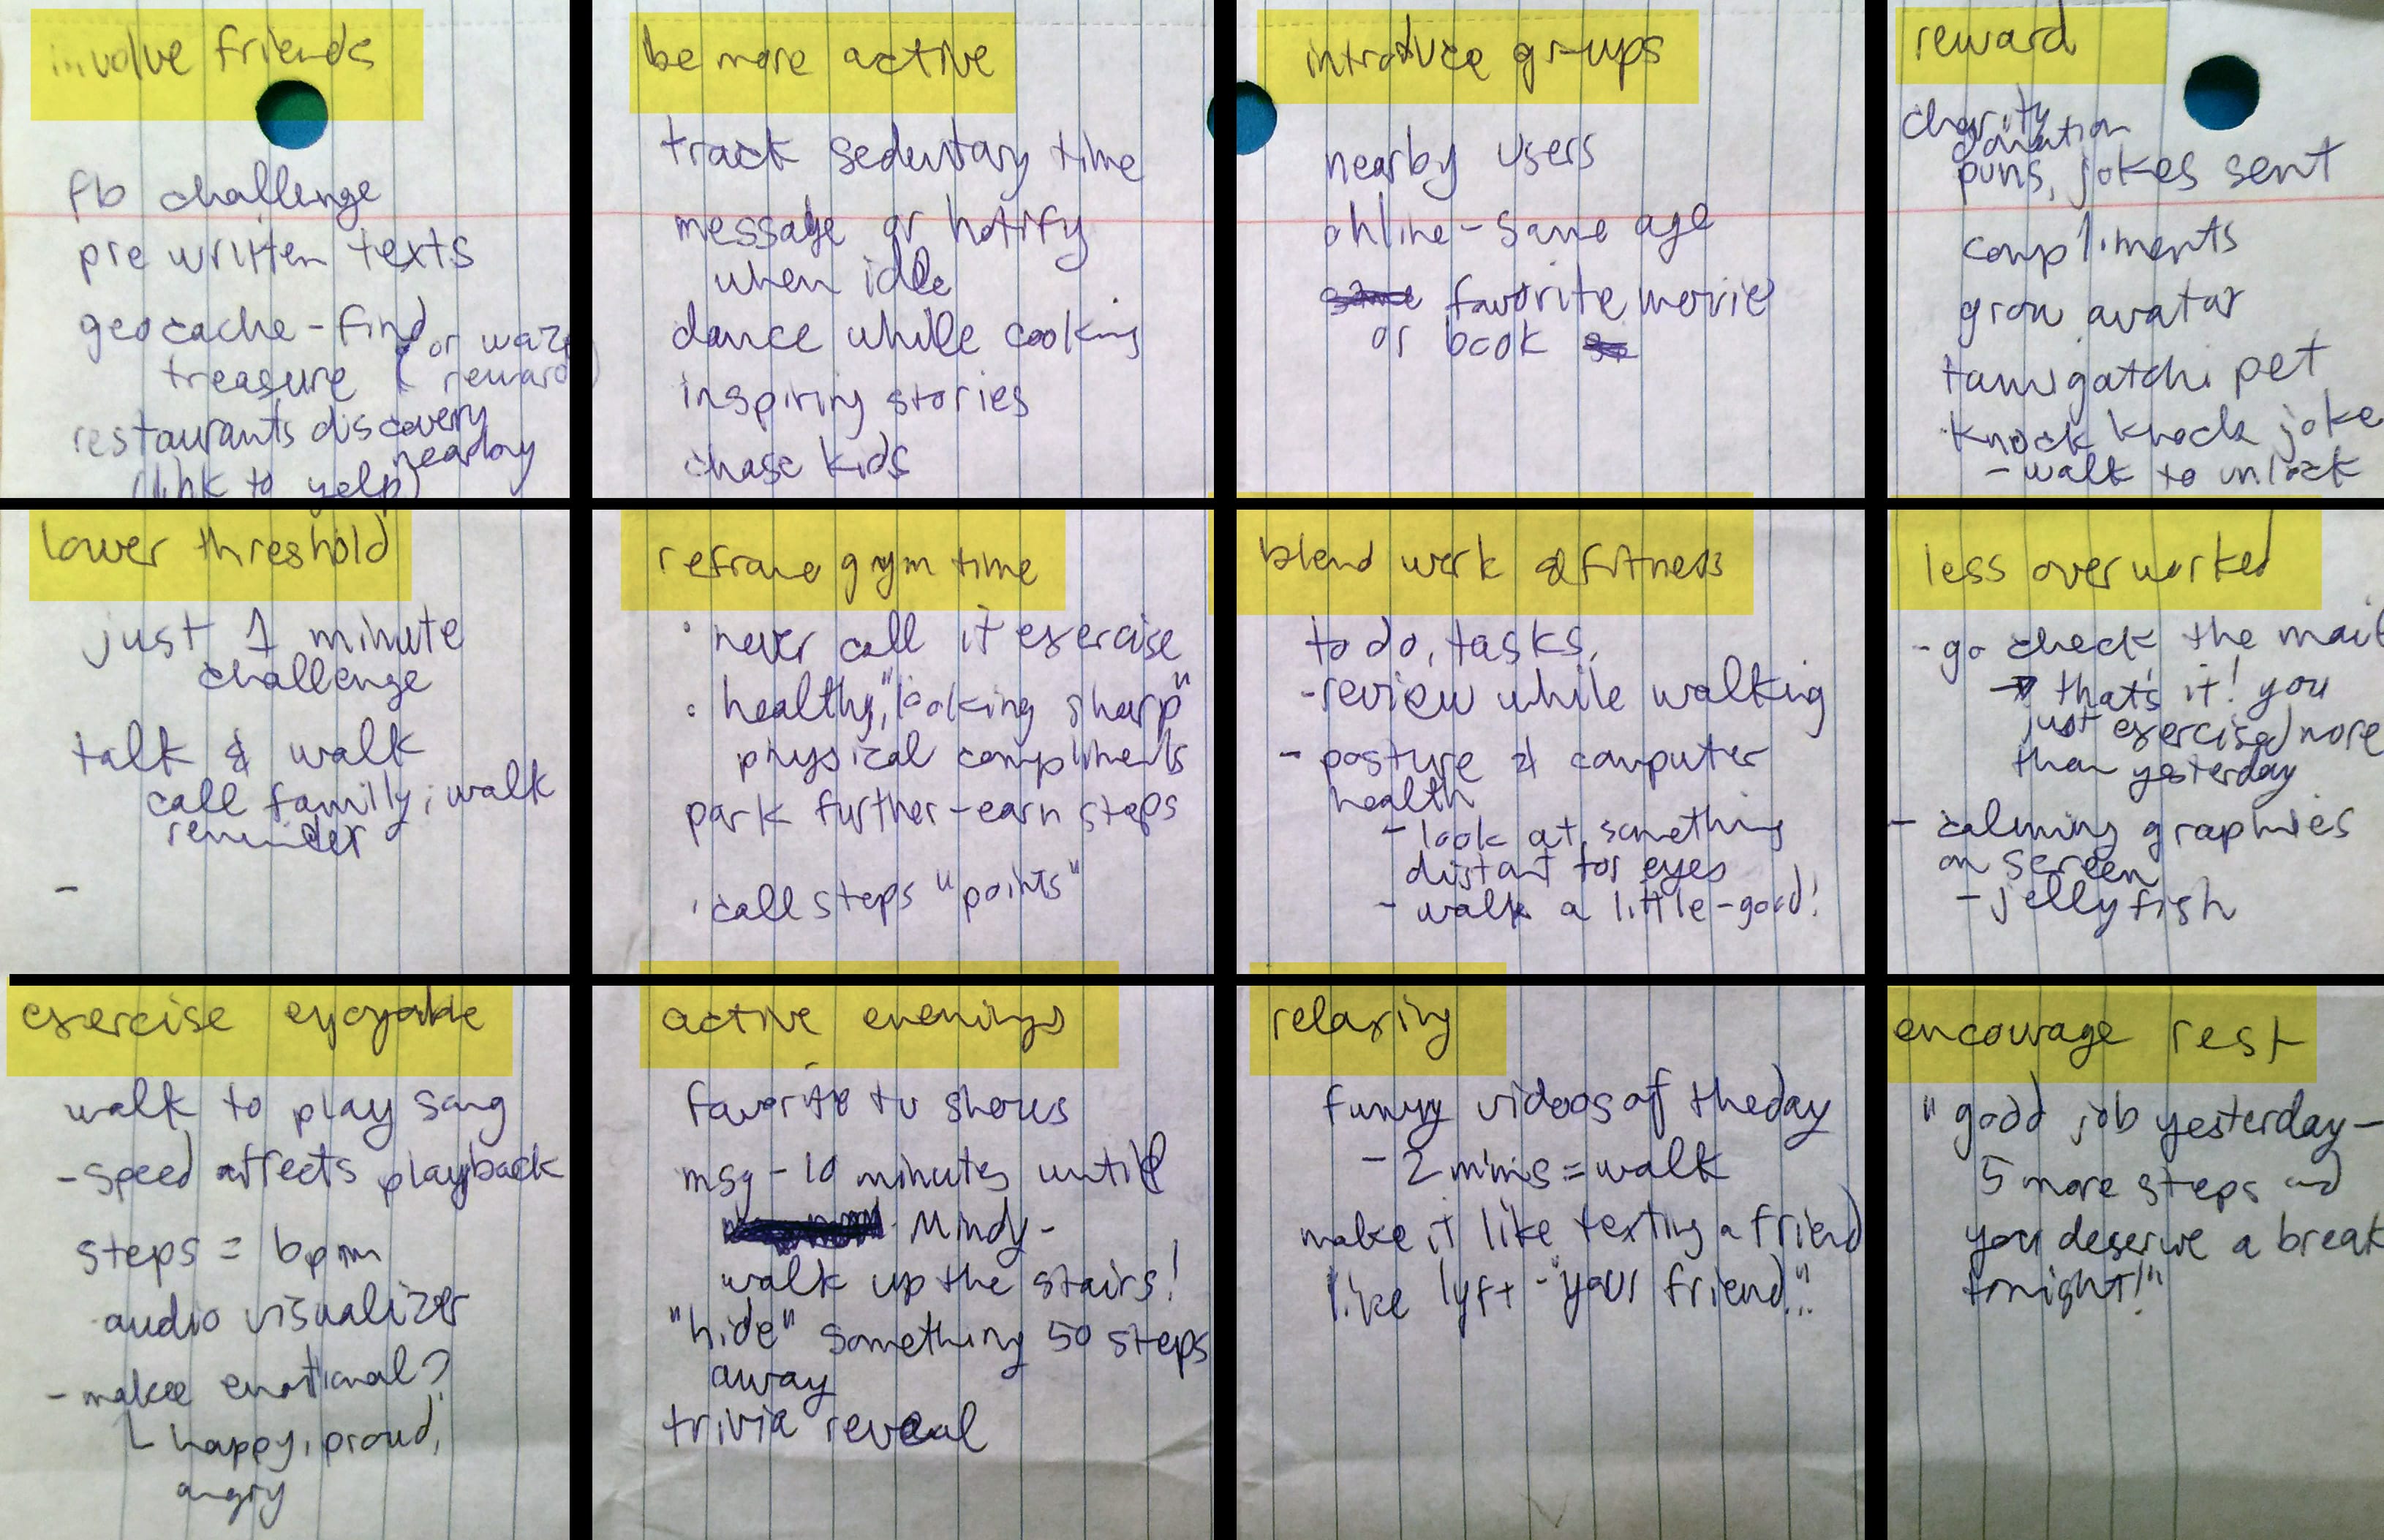 involve friends
fb challenge
pre written texts
geocache - find
treasure (or waze
reward)
restaurants discovery
nearby
(link to yelp)
be more active
track sedentary time
message or notify
when idle
dance while cooking
inspiring stories
chase kids
introduce grups
nearby users
online - same age
favorite movie
or book
reward
charity
donation
puns, jokes sent
compliments
grow avatar
tamigatchi pet
knock knock joke
- walk to unlock
lower threshold
just 1 minute
challenge
talk & walk
call family, walk
reminder
-
reframe gym time
• never call it exercise
• healthy, "looking sharp"
physical compliments
park further - earn steps
• call steps "points"
blend work & fitness
to do, tasks,
- review while walking
- posture & computer
health
- look at something
distant for eyes
- walk a little - good!
less overworked
- go check the mail
→ that's it! you
just exercised more
than yesterday
- calming graphics
on screen
- jellyfish
exercise enjoyable
walk to play song
- speed affects playback
steps = bpm
audio visualizer
- make emotional?
happy, proud,
angry
active evenings
favorite tv shows
msg - 10 minutes until
Mindy -
walk up the stairs!
"hide" something 50 steps
away
trivia reveal
relaxing
funny videos of the day
- 2 mins = walk
make it like texting a friend
like lyft - "your friend..."
encourage rest
"good job yesterday -
5 more steps and
you deserve a break
tonight!"